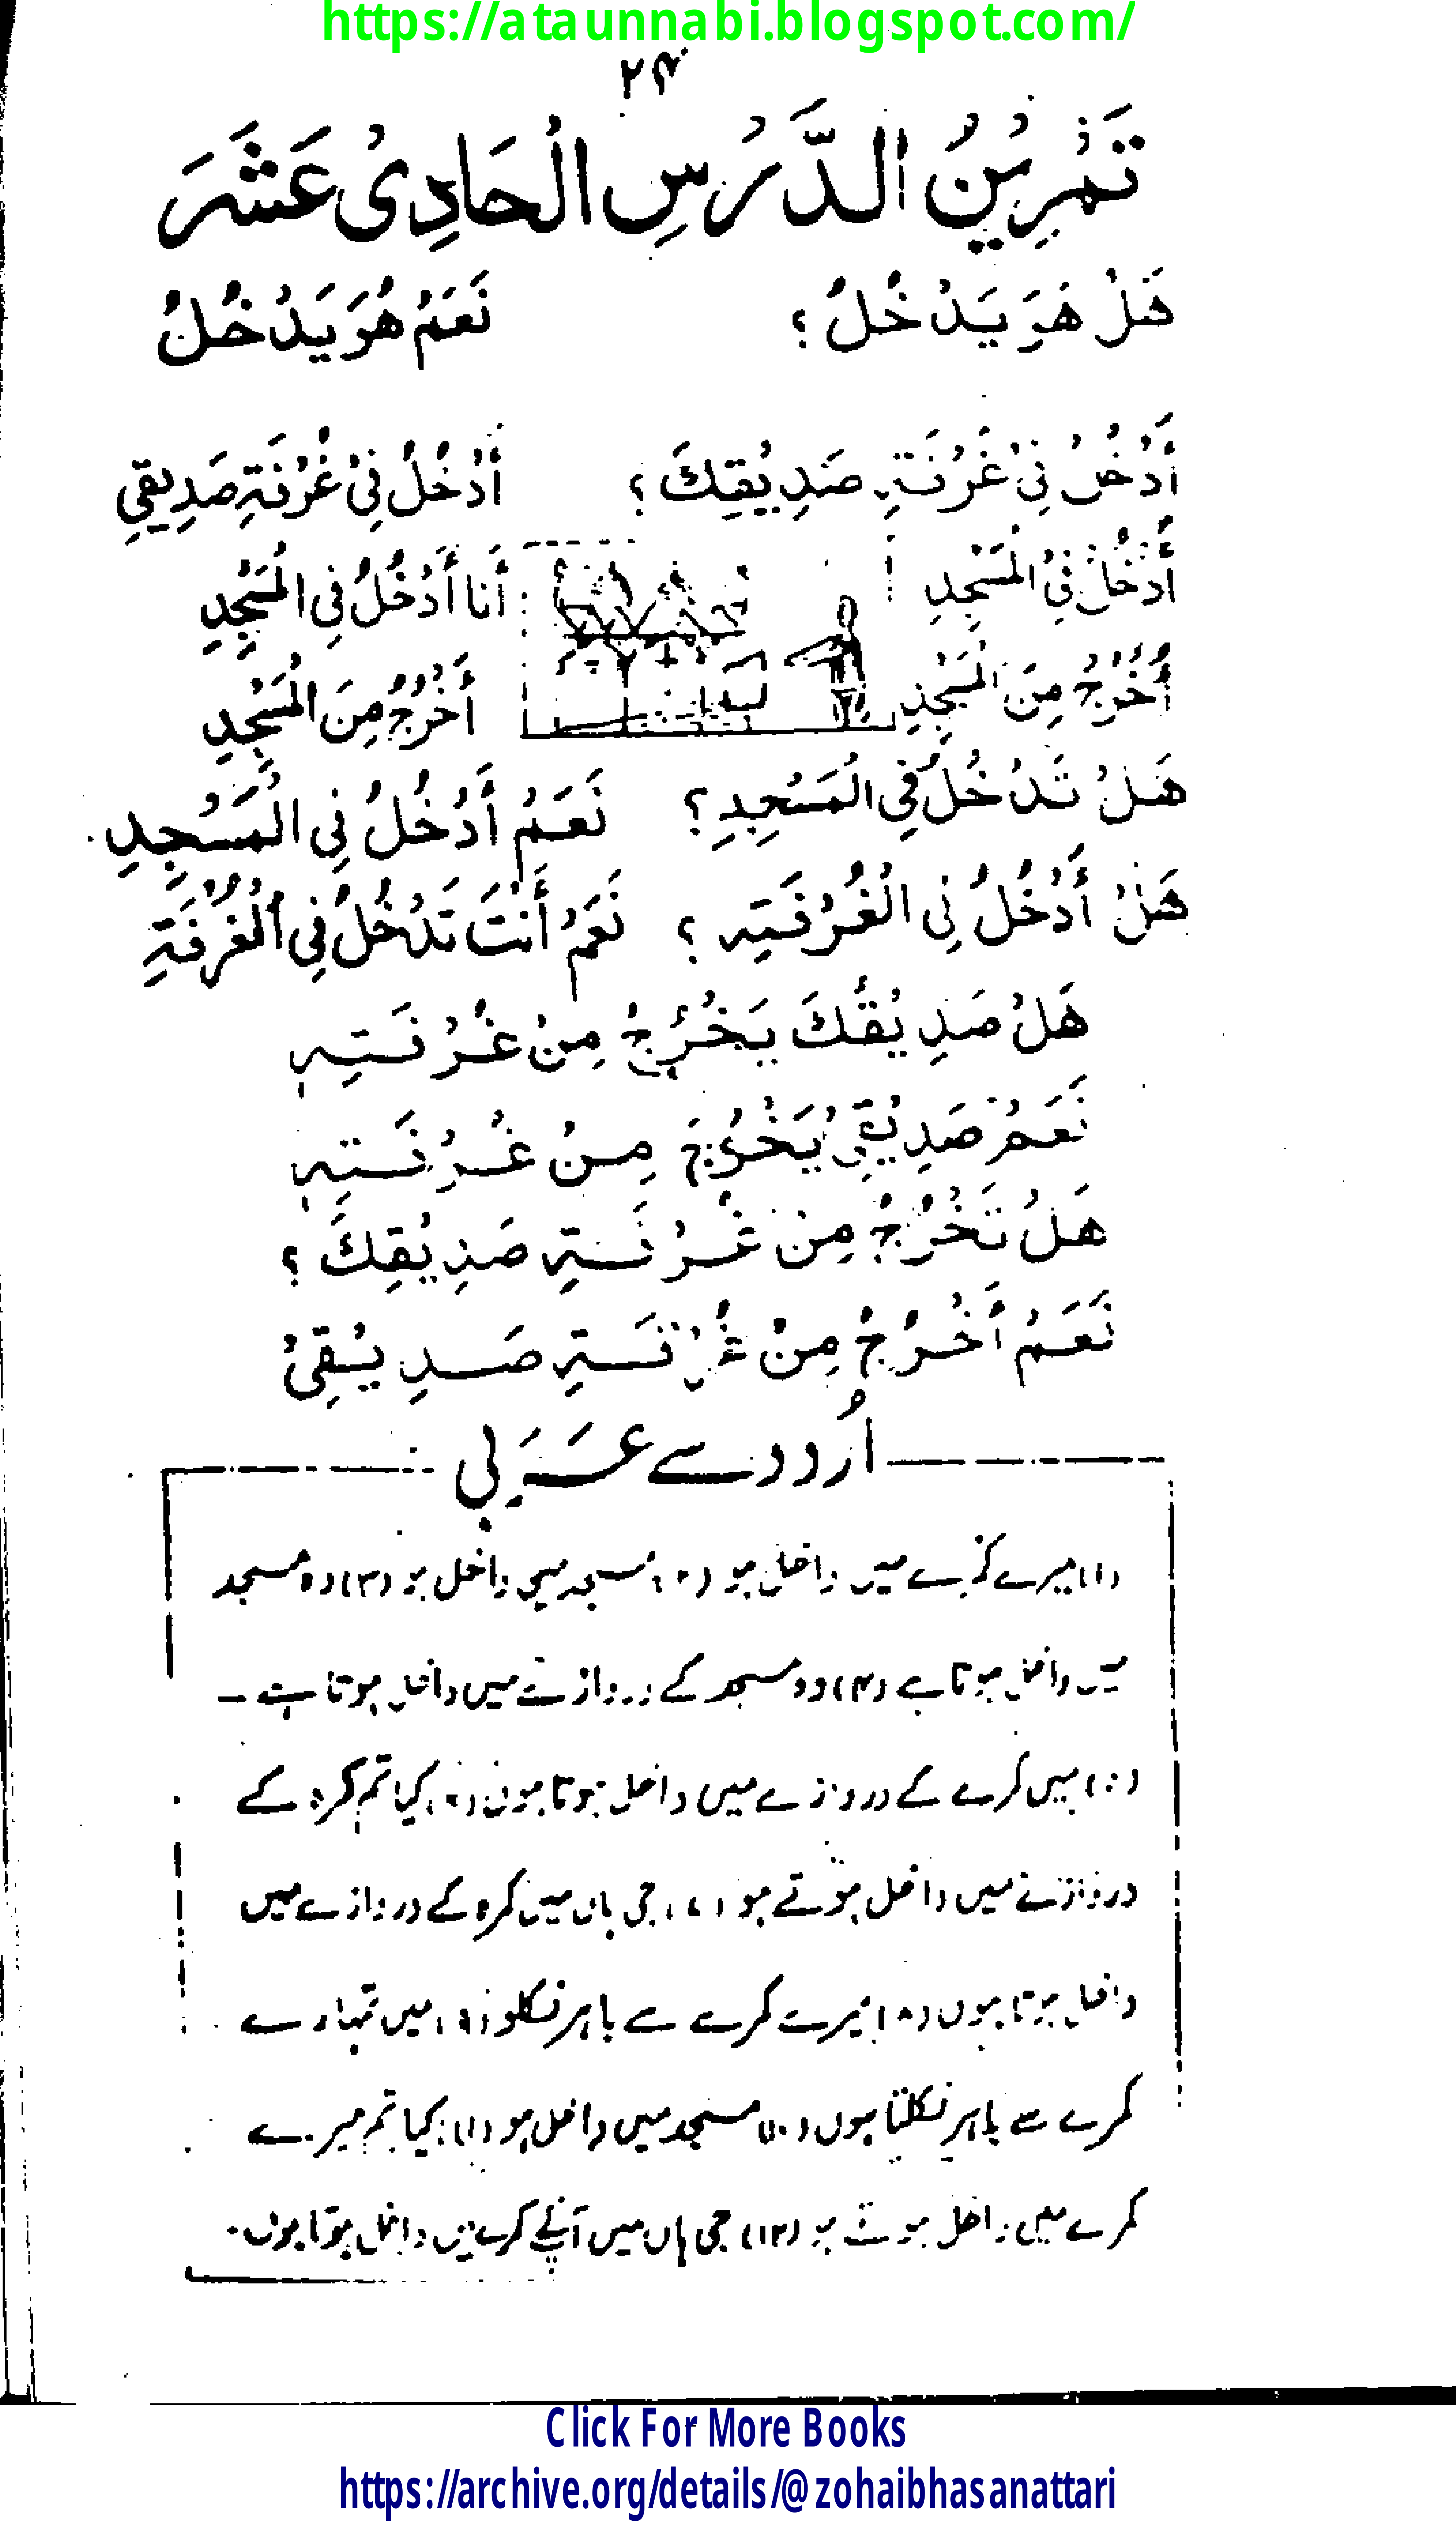 https://ataunnabi.blogspot.com/
۲۴
تَمْرِيْنُ الدَّرْسِ الْحَادِیْ عَشَرَ
هَلْ هُوَ يَدْخُلُ؟ نَعَمْ هُوَ يَدْخُلُ
أُدْخُلْ فِیْ غُرْفَةِ صَدِيْقِكَ؟ أَدْخُلُ فِیْ غُرْفَةِ صَدِيقِي
أُدْخُلْ فِی الْمَسْجِدِ أَنَا أَدْخُلُ فِی الْمَسْجِدِ
أُخْرُجْ مِنَ الْمَسْجِدِ أَخْرُجُ مِنَ الْمَسْجِدِ
هَلْ تَدْخُلُ فِی الْمَسْجِدِ؟ نَعَمْ أَدْخُلُ فِی الْمَسْجِدِ
هَلْ أَدْخُلُ فِی الْغُرْفَةِ؟ نَعَمْ أَنْتَ تَدْخُلُ فِی الْغُرْفَةِ
هَلْ صَدِيْقُكَ يَخْرُجُ مِنْ غُرْفَتِهٖ
نَعَمْ صَدِيْقِیْ يَخْرُجُ مِنْ غُرْفَتِهٖ
هَلْ تَخْرُجُ مِنْ غُرْفَةِ صَدِيْقِكَ؟
نَعَمْ أَخْرُجُ مِنْ غُرْفَةِ صَدِيْقِیْ
اُردو سے عَرَبِی
(۱) میرے کمرے میں داخل ہو (۲) مسجد میں داخل ہو (۳) وہ مسجد
میں داخل ہوتا ہے (۴) وہ مسجد کے دروازے میں داخل ہوتا ہے ۔
(۵) میں کمرے کے دروازے میں داخل ہوتا ہوں (۶) کیا تم کمرہ کے
دروازے میں داخل ہوتے ہو (۷) جی ہاں میں کمرہ کے دروازے میں
داخل ہوتا ہوں (۸) میرے کمرے سے باہر نکلو (۹) میں تمہارے
کمرے سے باہر نکلتا ہوں (۱۰) مسجد میں داخل ہو (۱۱) کیا تم میرے
کمرے میں داخل ہوتے ہو (۱۲) جی ہاں میں آپکے کمرے میں داخل ہوتا ہوں ۔
Click For More Books
https://archive.org/details/@zohaibhasanattari